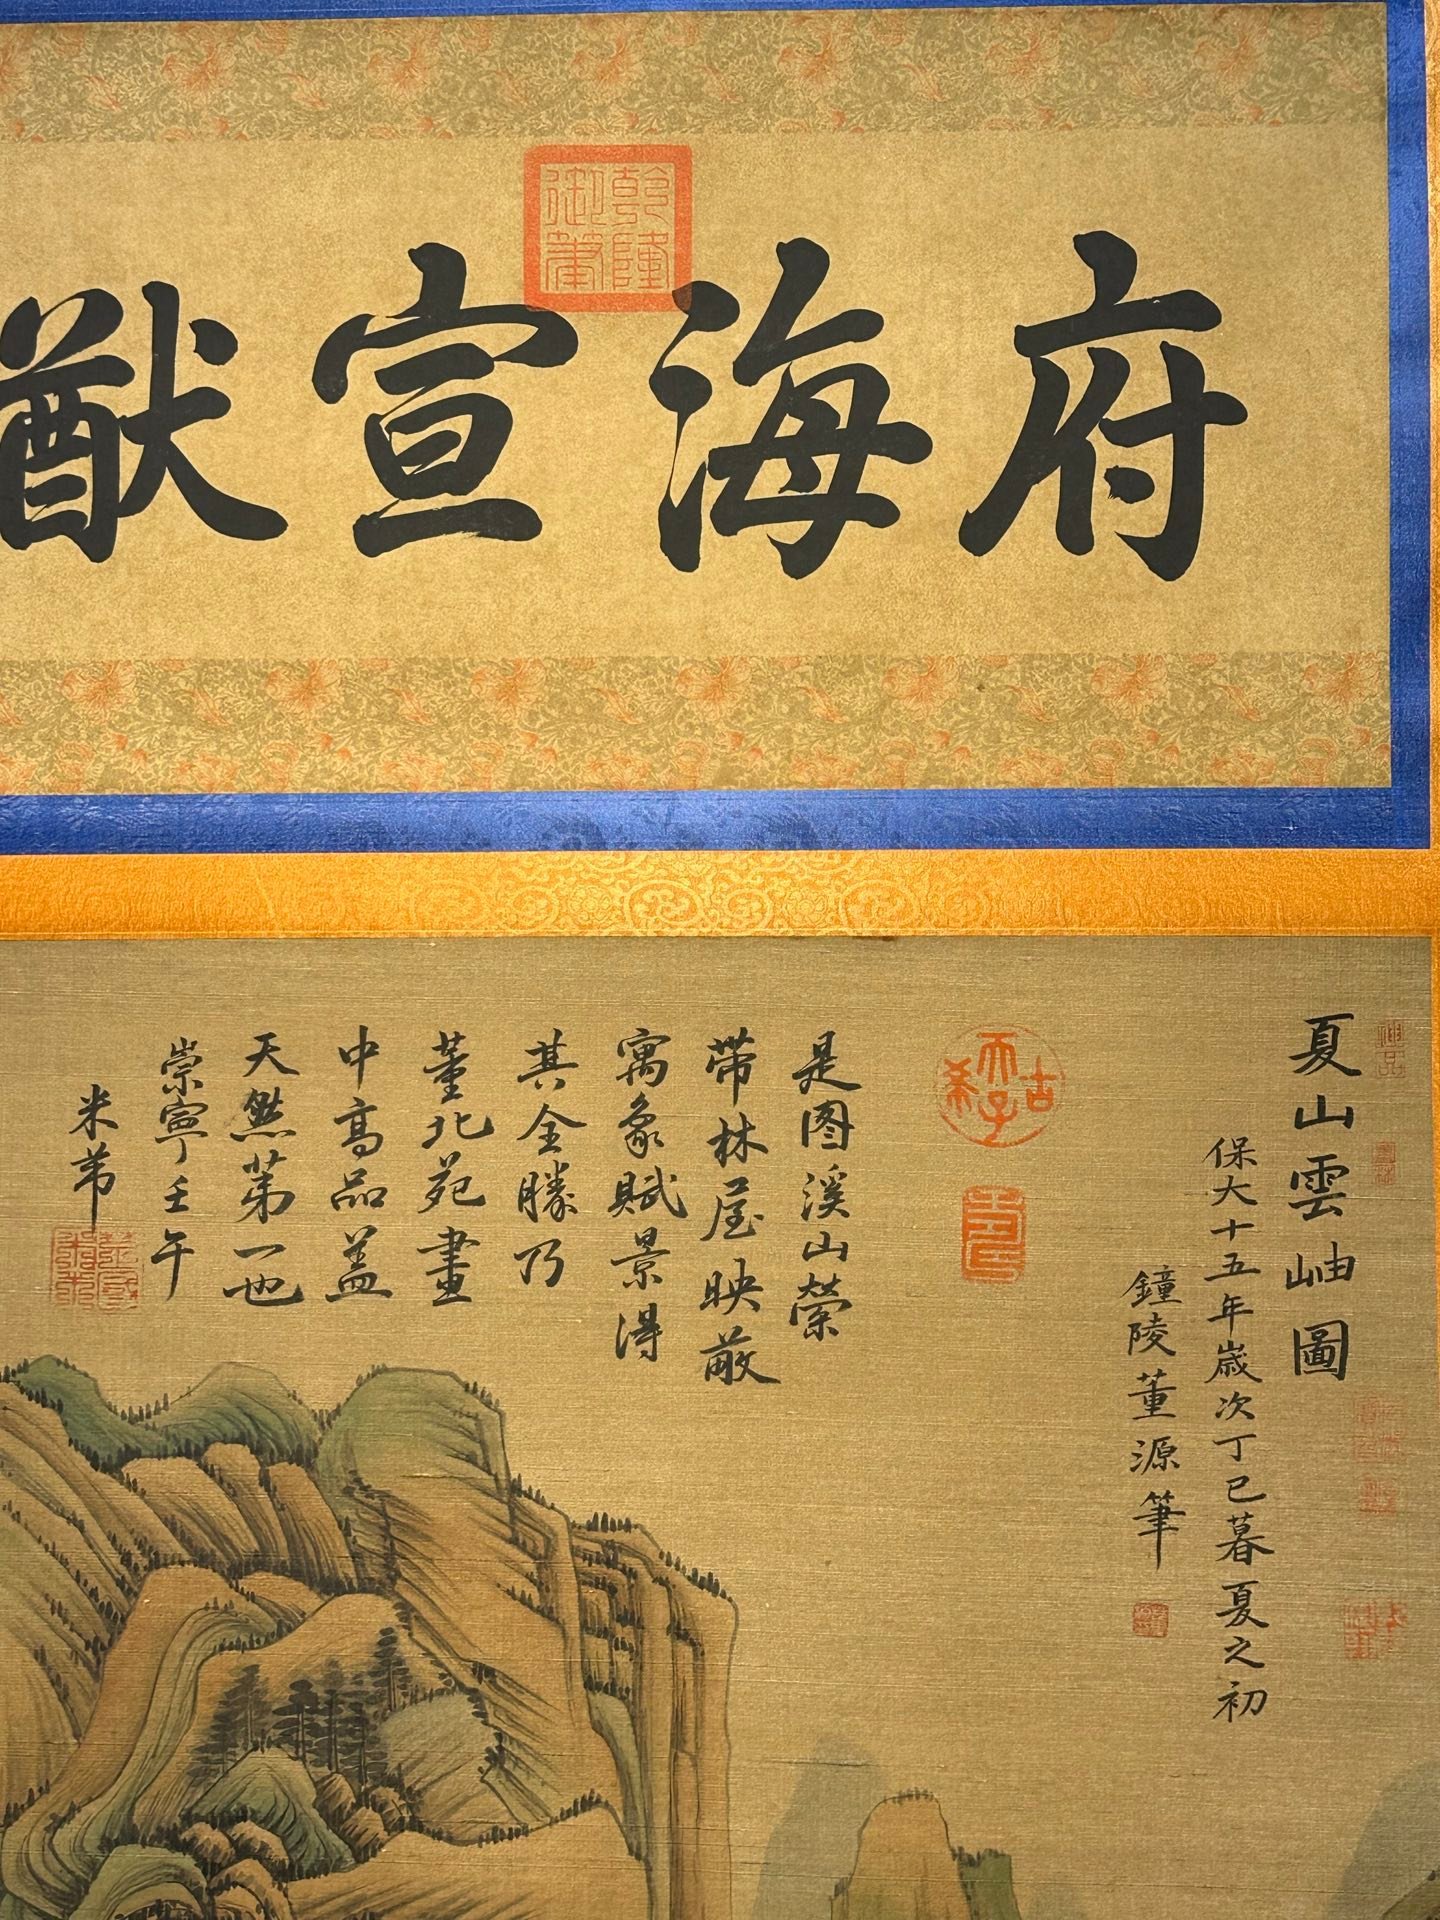 府海宣猷
乾隆御筆
夏山雲岫圖
保大十五年歲次丁巳暮夏之初
鐘陵董源筆
是图溪山縈
帶林屋映蔽
寓象賦景得
其全勝乃
董北苑畫
中高品盖
天然苐一也
崇寧壬午
米芾